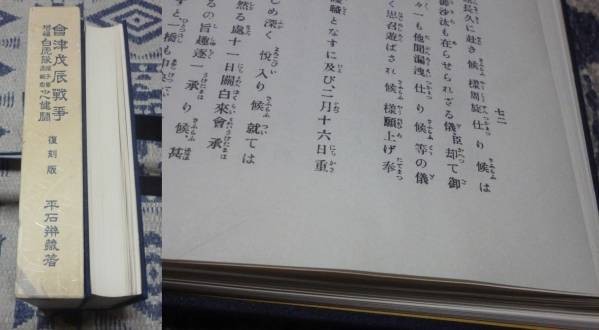 會津戊辰戰爭
増補 白虎隊娘子軍高齢者之健闘
復刻版
平石辨蔵著
七二
長久に赴き候樣周旋仕り候は
御沙汰も在らせられざる儀臣却て御
々一も他聞漏洩仕り候等の儀
く思召遊ばされ候樣願上げ奉
職となすに及び二月十六日重
しめ深く悅入り候就ては
然る處十一日關白來會承
るの旨趣逐一承り候甚
すと一橋も